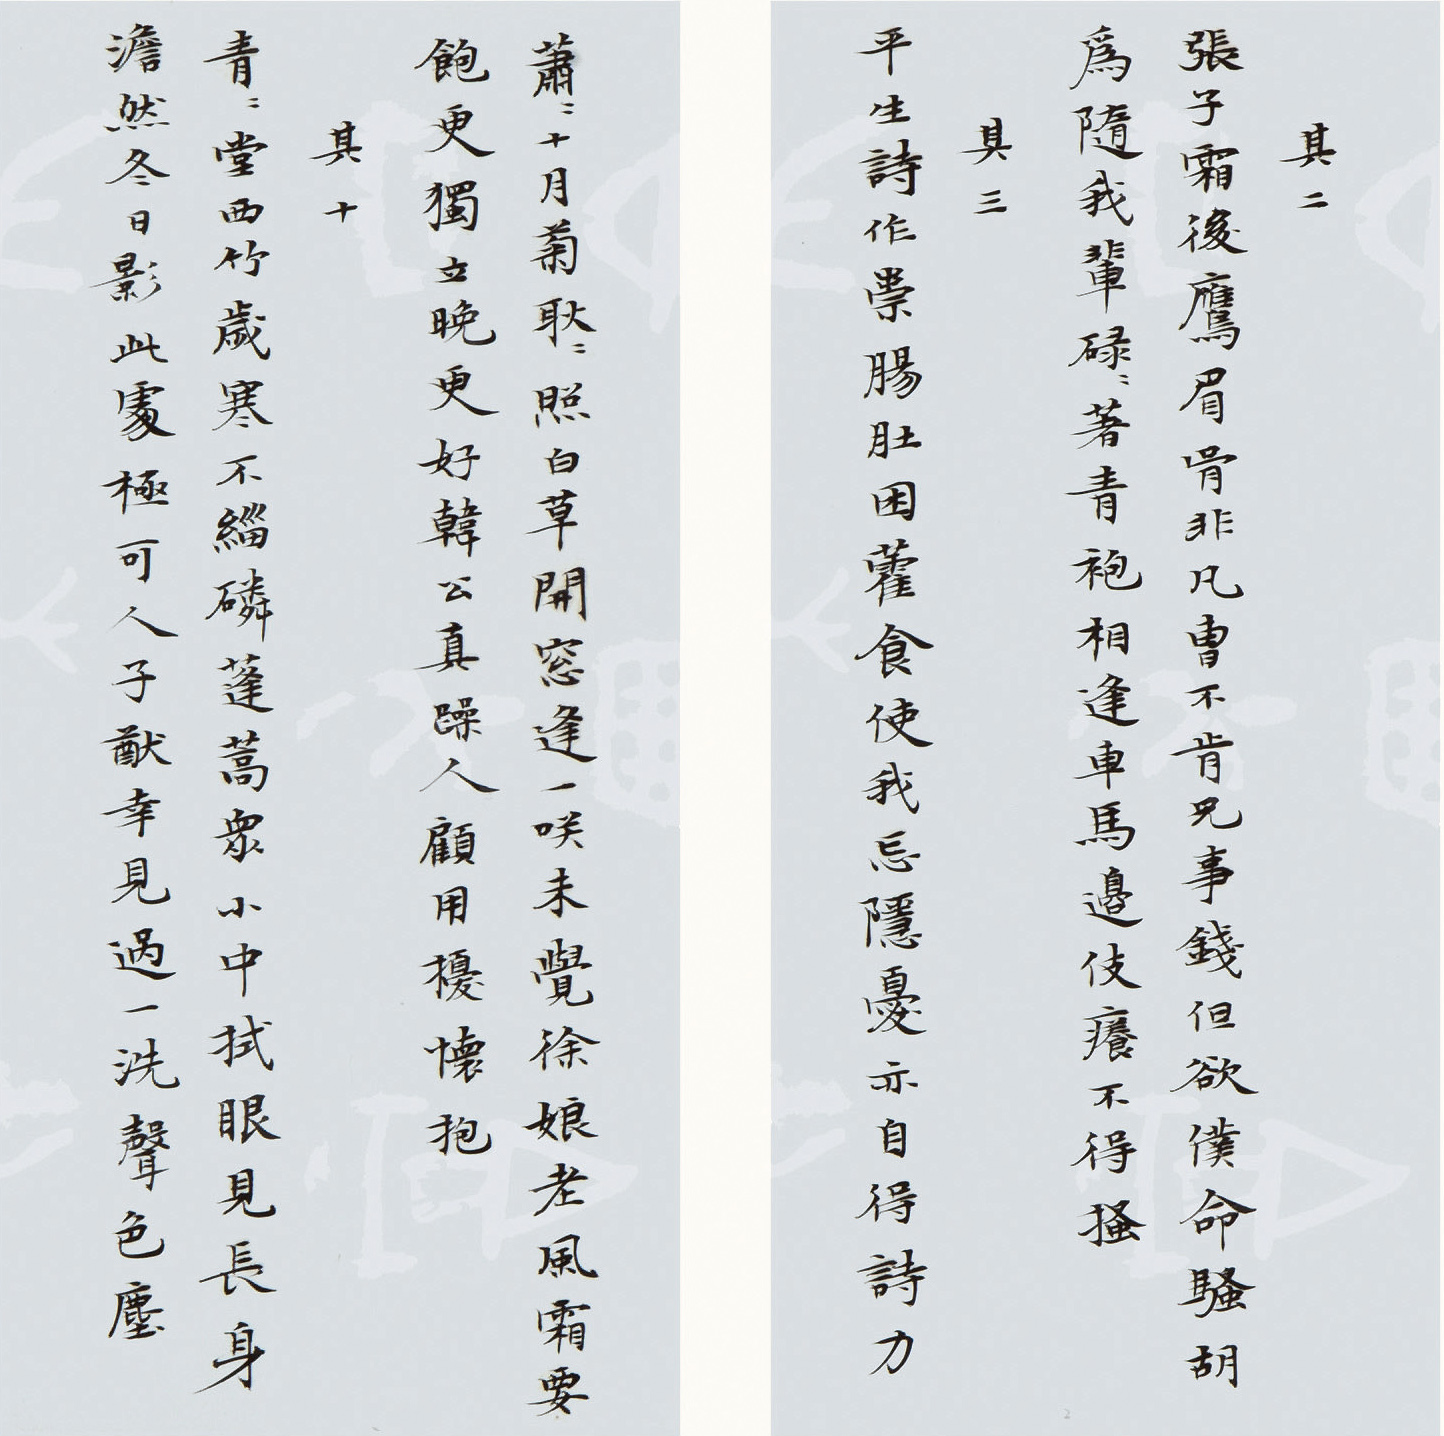 其二
張子霜後鷹眉骨非凡曹不肯兄事錢但欲僕命騷胡
為隨我輩碌〻著青袍相逢車馬邊伎癢不得搔
其三
平生詩作祟腸肚困藿食使我忘隱憂亦自得詩力
蕭〻十月菊耿〻照白草開窓逢一咲未覺徐娘老風霜要
飽更獨立晚更好韓公真躁人顧用擾懷抱
其十
青〻堂西竹歲寒不緇磷蓬蒿眾小中拭眼見長身
澹然冬日影此處極可人子猷幸見過一洗聲色塵